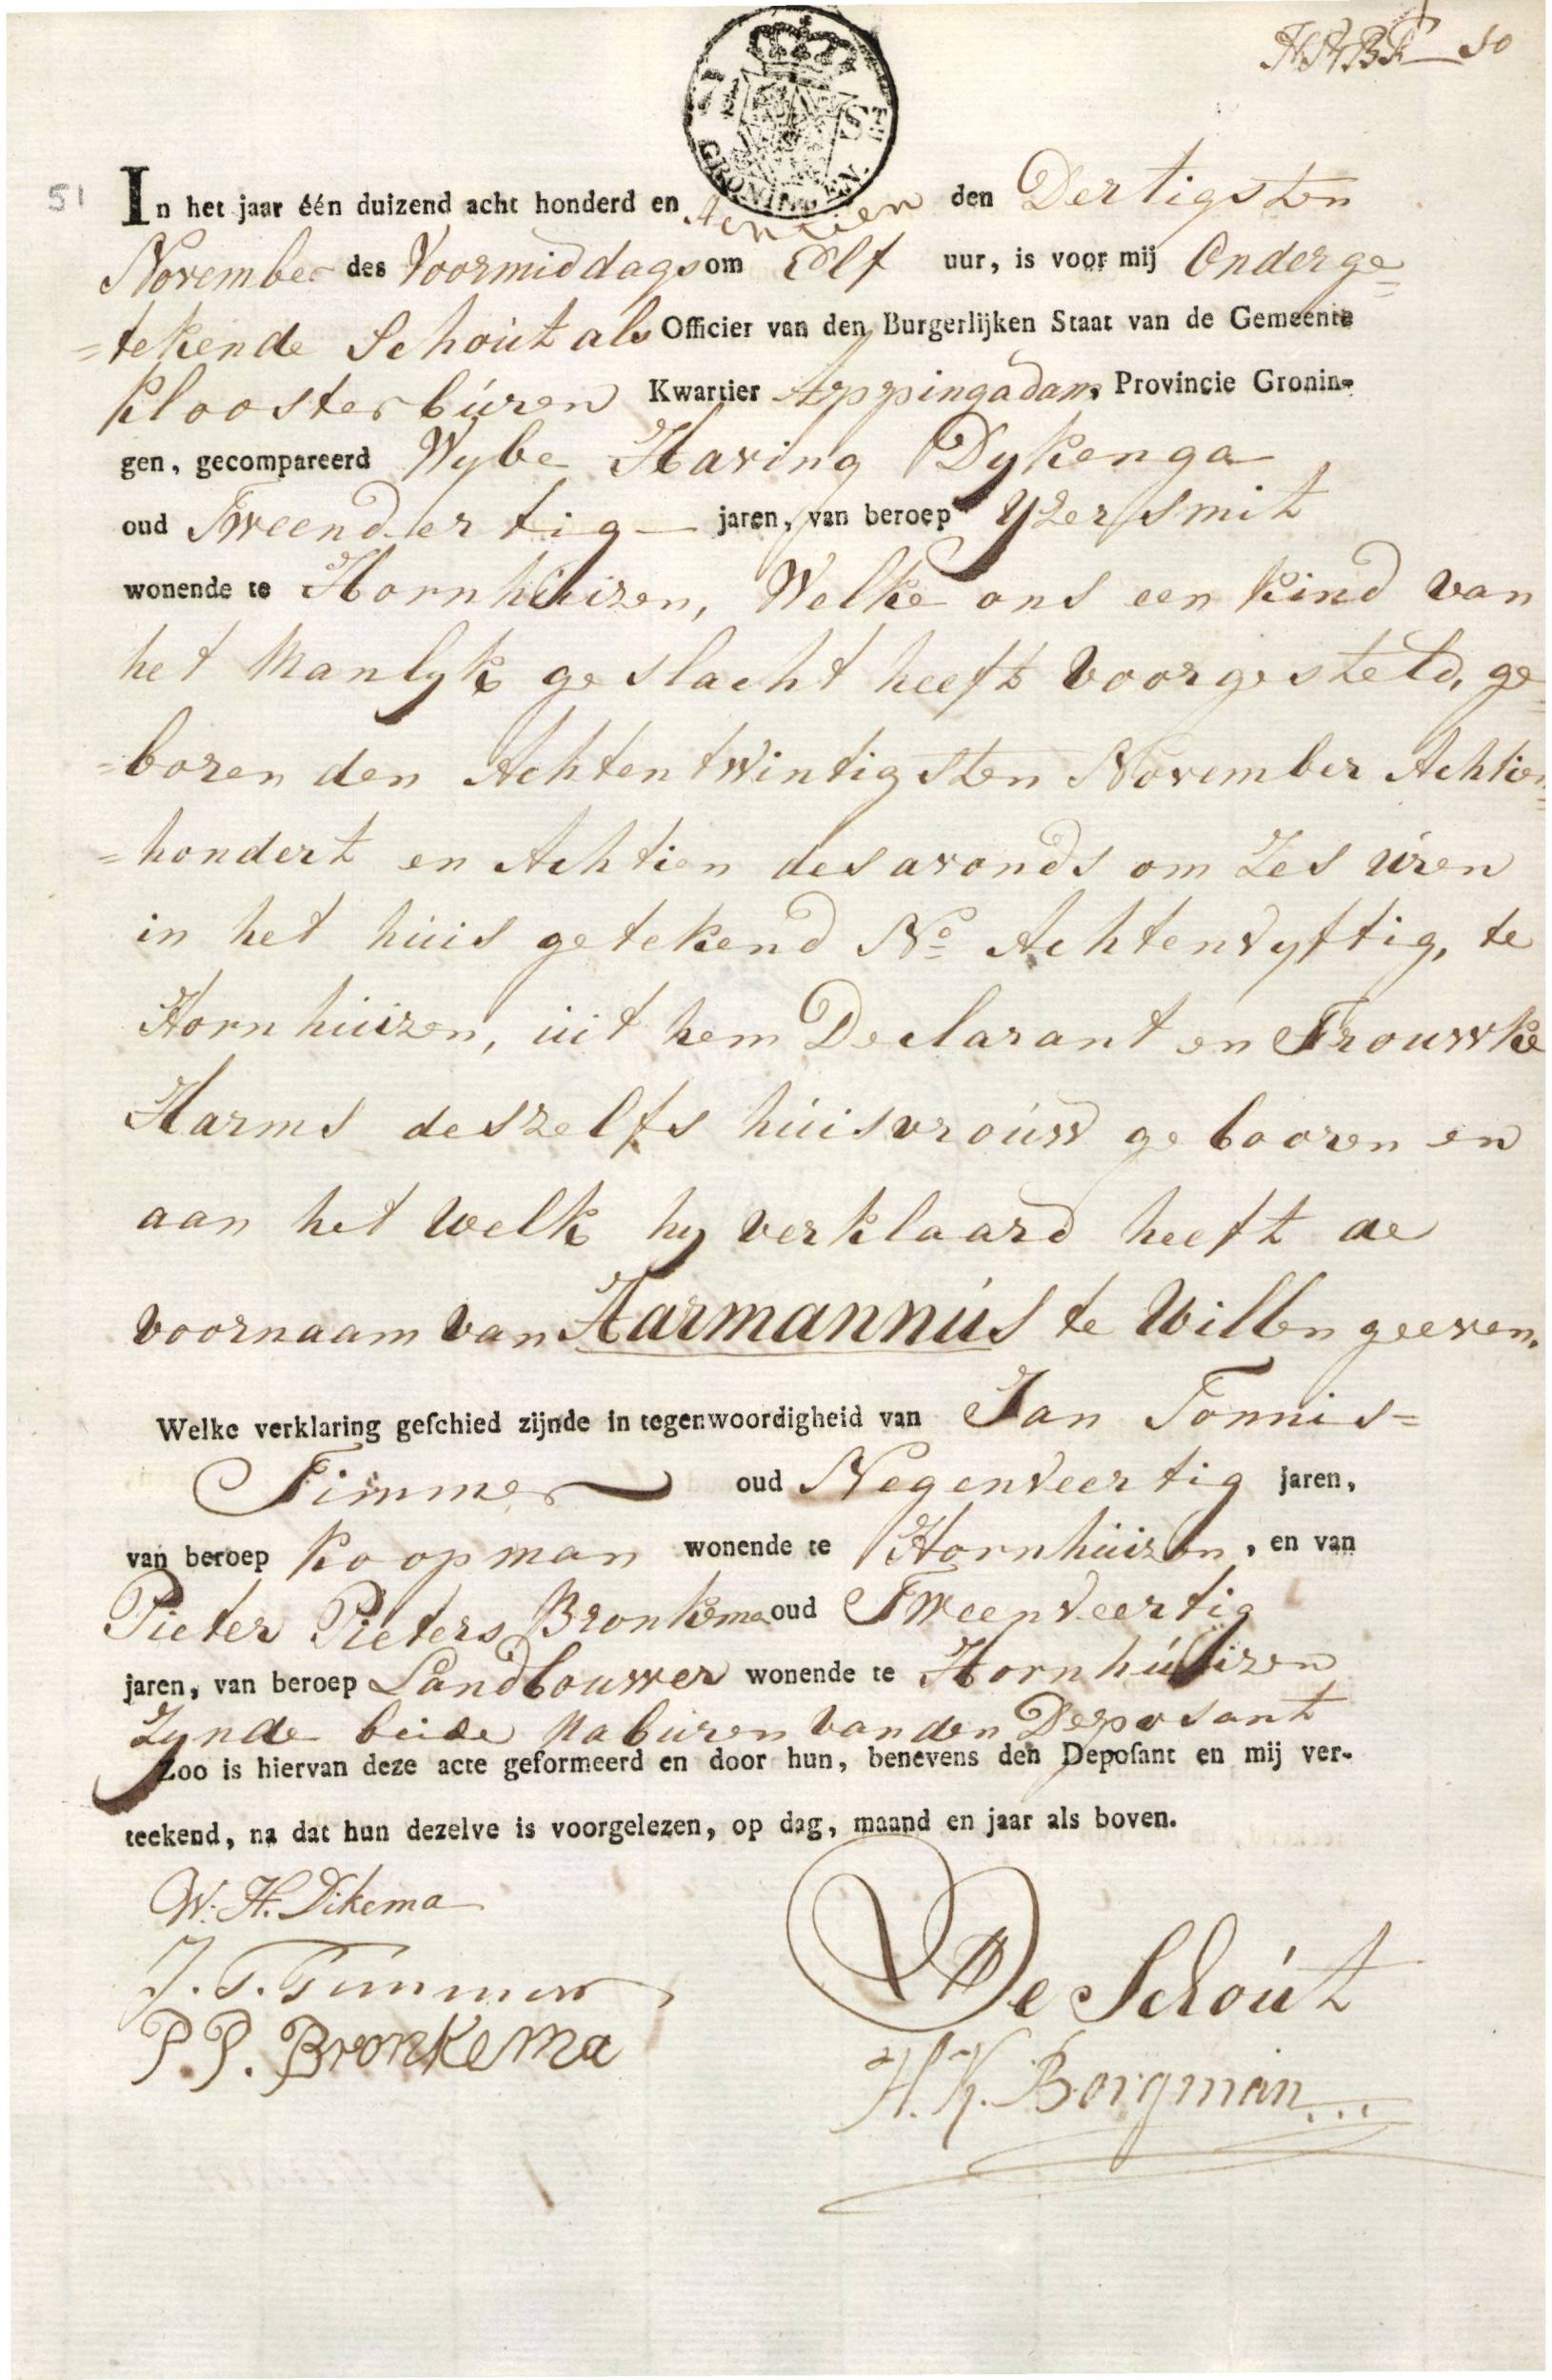 HHBK 50
7½ ST
GRONINGEN.
51
In het jaar één duizend acht honderd en Achtien den Dertigsten
November des Voormiddags om Elf uur, is voor mij Onderge=
=tekende Schoút als Officier van den Burgerlijken Staat van de Gemeente
Kloosterbúren Kwartier Appingadam, Provincie Gronin-
gen, gecompareerd Wybe Haring Dykenga
oud Tweendertig jaren, van beroep Yzersmit
wonende te Hornhúizen, Welke ons een kind van
het Manlyk geslacht heeft voorgesteld, ge=
=boren den Achtentwintigsten November Achtien=
=hondert en Achtien des avonds om Zes úren
in het húis getekend No Achtenvyftig, te
Hornhúizen, úit hem Declarant en Trouwke
Harms deszelfs húisvroúw gebooren en
aan het welk hy verklaard heeft de
voornaam van Harmannús te Willen geeven.
Welke verklaring geſchied zijnde in tegenwoordigheid van Jan Tonnis=
Timmer oud Negenveertig jaren,
van beroep Koopman wonende te Hornhúizen, en van
Pieter Pieters Bronkema oud Tweenveertig
jaren, van beroep Landbouwer wonende te Hornhúizen
Zynde beide Nabúren van den Deposant
Zoo is hiervan deze acte geformeerd en door hun, benevens den Depoſant en mij ver-
teekend, na dat hun dezelve is voorgelezen, op dag, maand en jaar als boven.
W. H. Dikema
J. T. Timmer
P. P. Bronkema
De Schoút
H. K. Borgman